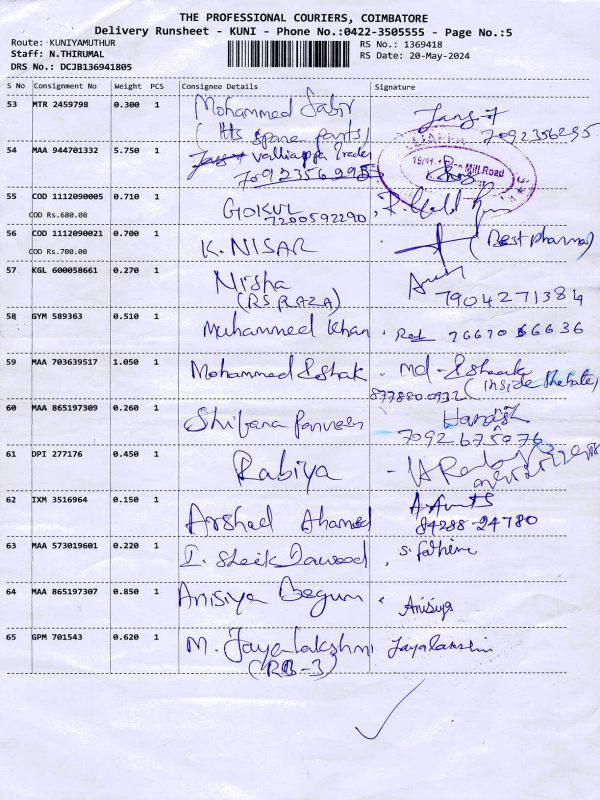 THE PROFESSIONAL COURIERS, COIMBATORE
Delivery Runsheet - KUNI - Phone No.:0422-3505555 - Page No.:5
Route: KUNIYAMUTHUR
RS No.: 1369418
Staff: N.THIRUMAL
RS Date: 20-May-2024
DRS No.: DCJB136941805
S No Consignment No Weight PCS Consignee Details Signature
53 MTR 2459798 0.300 1 Mohammed Sabir
(Hts spare parts) 7092356295
54 MAA 944701332 5.750 1 valliappa Trader
Mill Road
7092356295
55 COD 1112090005 0.710 1 GOKUL
COD Rs.680.00 7200592290
56 COD 1112090021 0.700 1 K. NISAR (Best pharma)
COD Rs.700.00
57 KGL 600058661 0.270 1 Nisha
(RS PLAZA) 7904271384
58 GYM 589363 0.510 1 Muhammed Khan
59 MAA 703639517 1.050 1 Mohammed Eshak
(inside the Gate)
60 MAA 865197309 0.260 1 Shifana Parveen
7092675076
61 DPI 277176 0.450 1 Rabiya
62 IXM 3516964 0.150 1 Arshad Ahamed
84288-24780
63 MAA 573019601 0.220 1 I. Sheik Dawood S. fathima
64 MAA 865197307 0.850 1 Anisiya Begum Anisiya
65 GPM 701543 0.620 1 M. Jayalakshmi Jayalakshmi
(RB-3)